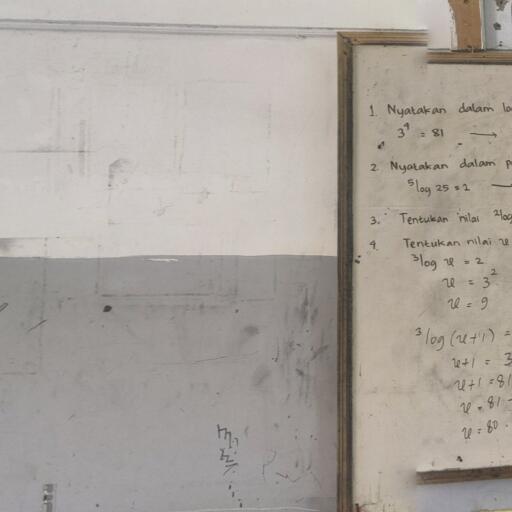 1. Nyatakan dalam lo
3⁴ = 81 →
2. Nyatakan dalam p
⁵log 25 = 2 —
3. Tentukan nilai ²log
4. Tentukan nilai x
³log x = 2
x = 3²
x = 9
³log (x+1) =
x+1 = 3
x+1 = 81
x = 81 -
x = 80.